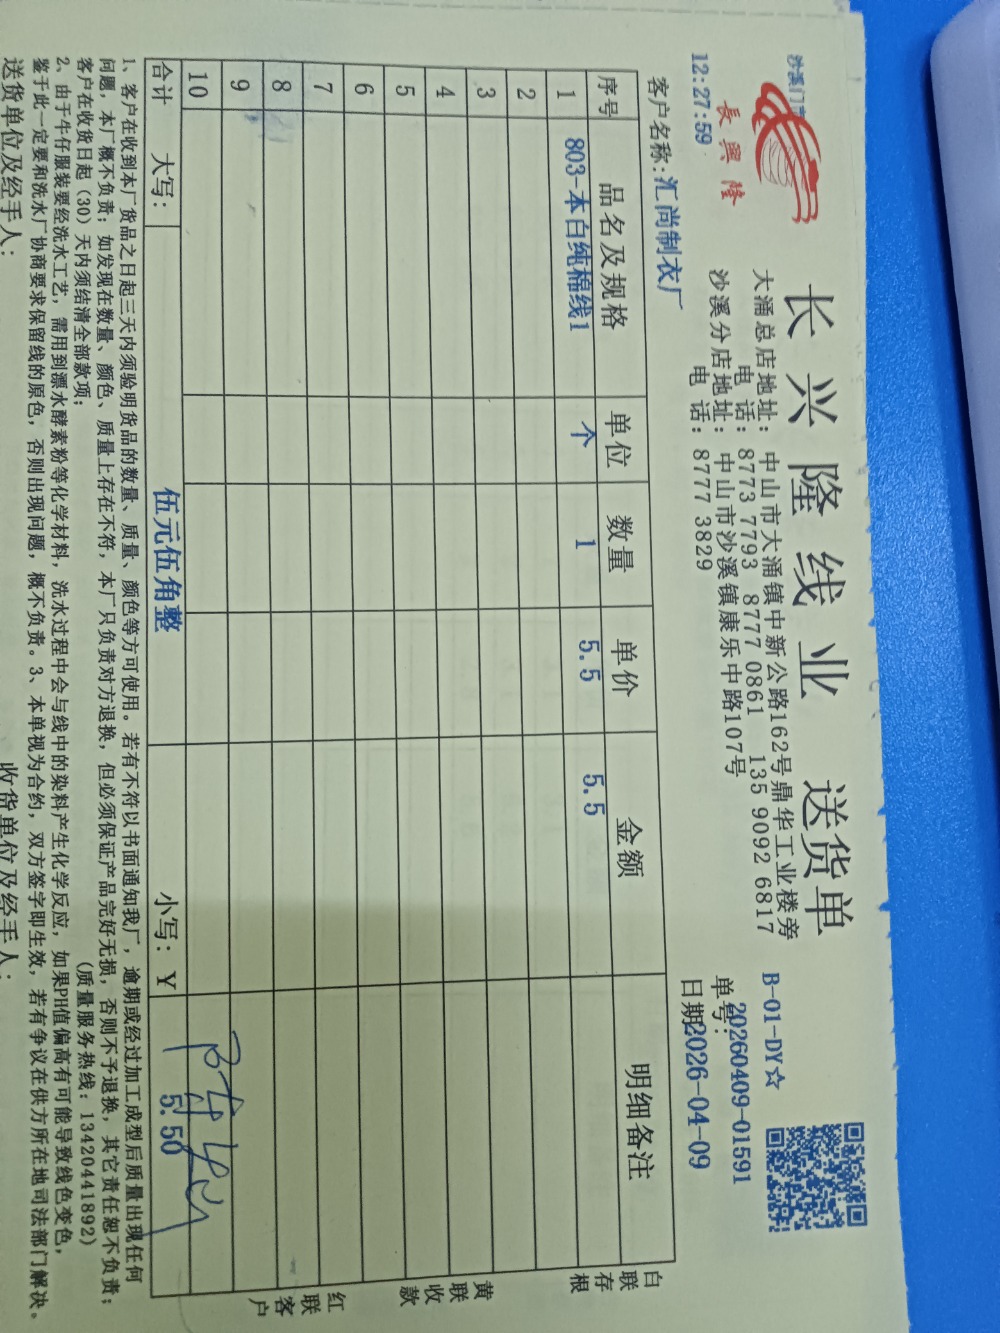 沙溪门市
長興隆
12:27:59
长兴隆线业 送货单
大涌总店地址: 中山市大涌镇中新公路162号鼎华工业楼旁
电 话: 8773 7793 8777 0861 135 9092 6817
沙溪分店地址: 中山市沙溪镇康乐中路107号
电 话: 8777 3829
B-01-DY☆
单号: 20260409-01591
日期 2026-04-09
客户名称: 汇尚制衣厂
序号 品名及规格 单位 数量 单价 金额 明细备注
1 803-本白纯棉线1 个 1 5.5 5.5
2
3
4
5
6
7
8
9
10
合计 大写: 伍元伍角整 小写: Y 5.50
白联存根
黄联收款
红联客户
1、客户在收到本厂货品之日起三天内须验明货品的数量、质量、颜色等方可使用。若有不符以书面通知我厂,逾期或经过加工成型后质量出现任何
问题,本厂概不负责;如发现在数量、颜色、质量上存在不符,本厂只负责对方退换,但必须保证产品完好无损,否则不予退换,其它责任恕不负责;
客户在收货日起(30)天内须结清全部款项; (质量服务热线:13420441892)
2、由于牛仔服装要经洗水工艺,需用到漂水酵素粉等化学材料,洗水过程中会与线中的染料产生化学反应,如果PH值偏高有可能导致线色变色,
鉴于此一定要和洗水厂协商要求保留线的原色,否则出现问题,概不负责。3、本单视为合约,双方签字即生效,若有争议在供方所在地司法部门解决。
送货单位及经手人: 收货单位及经手人: